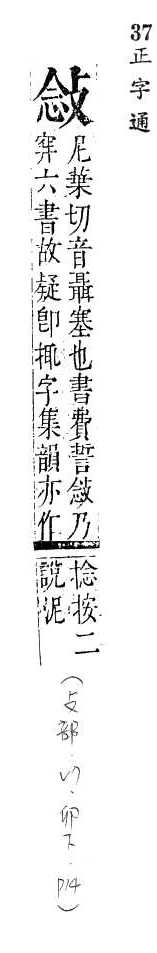 37 正字通
敜
尼葉切音聶塞也書費誓敜乃
穽六書故疑卽字集韻亦作
捻按二
說泥
(攴部·卯下·P14)